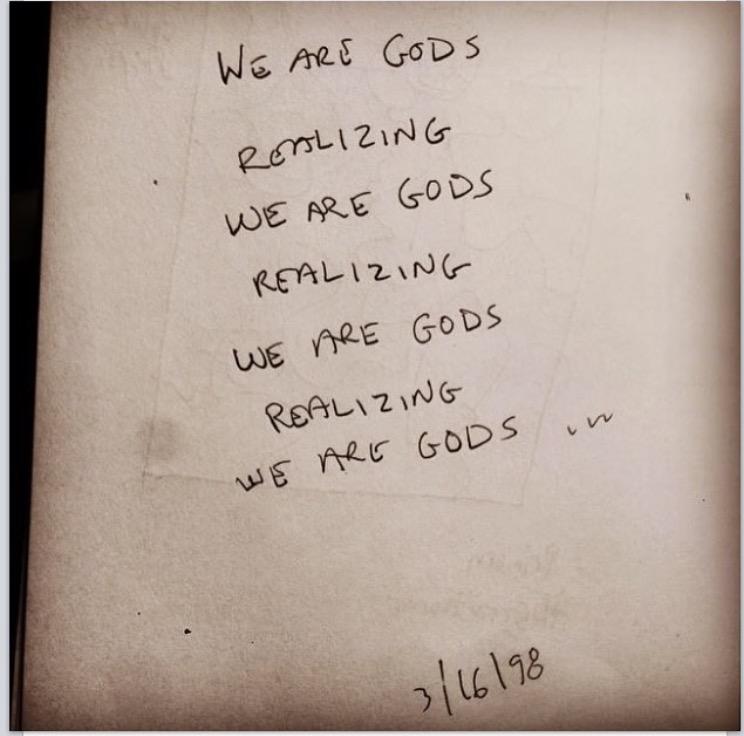 WE ARE GODS
REALIZING
WE ARE GODS
REALIZING
WE ARE GODS
REALIZING
WE ARE GODS ...
3/16/98